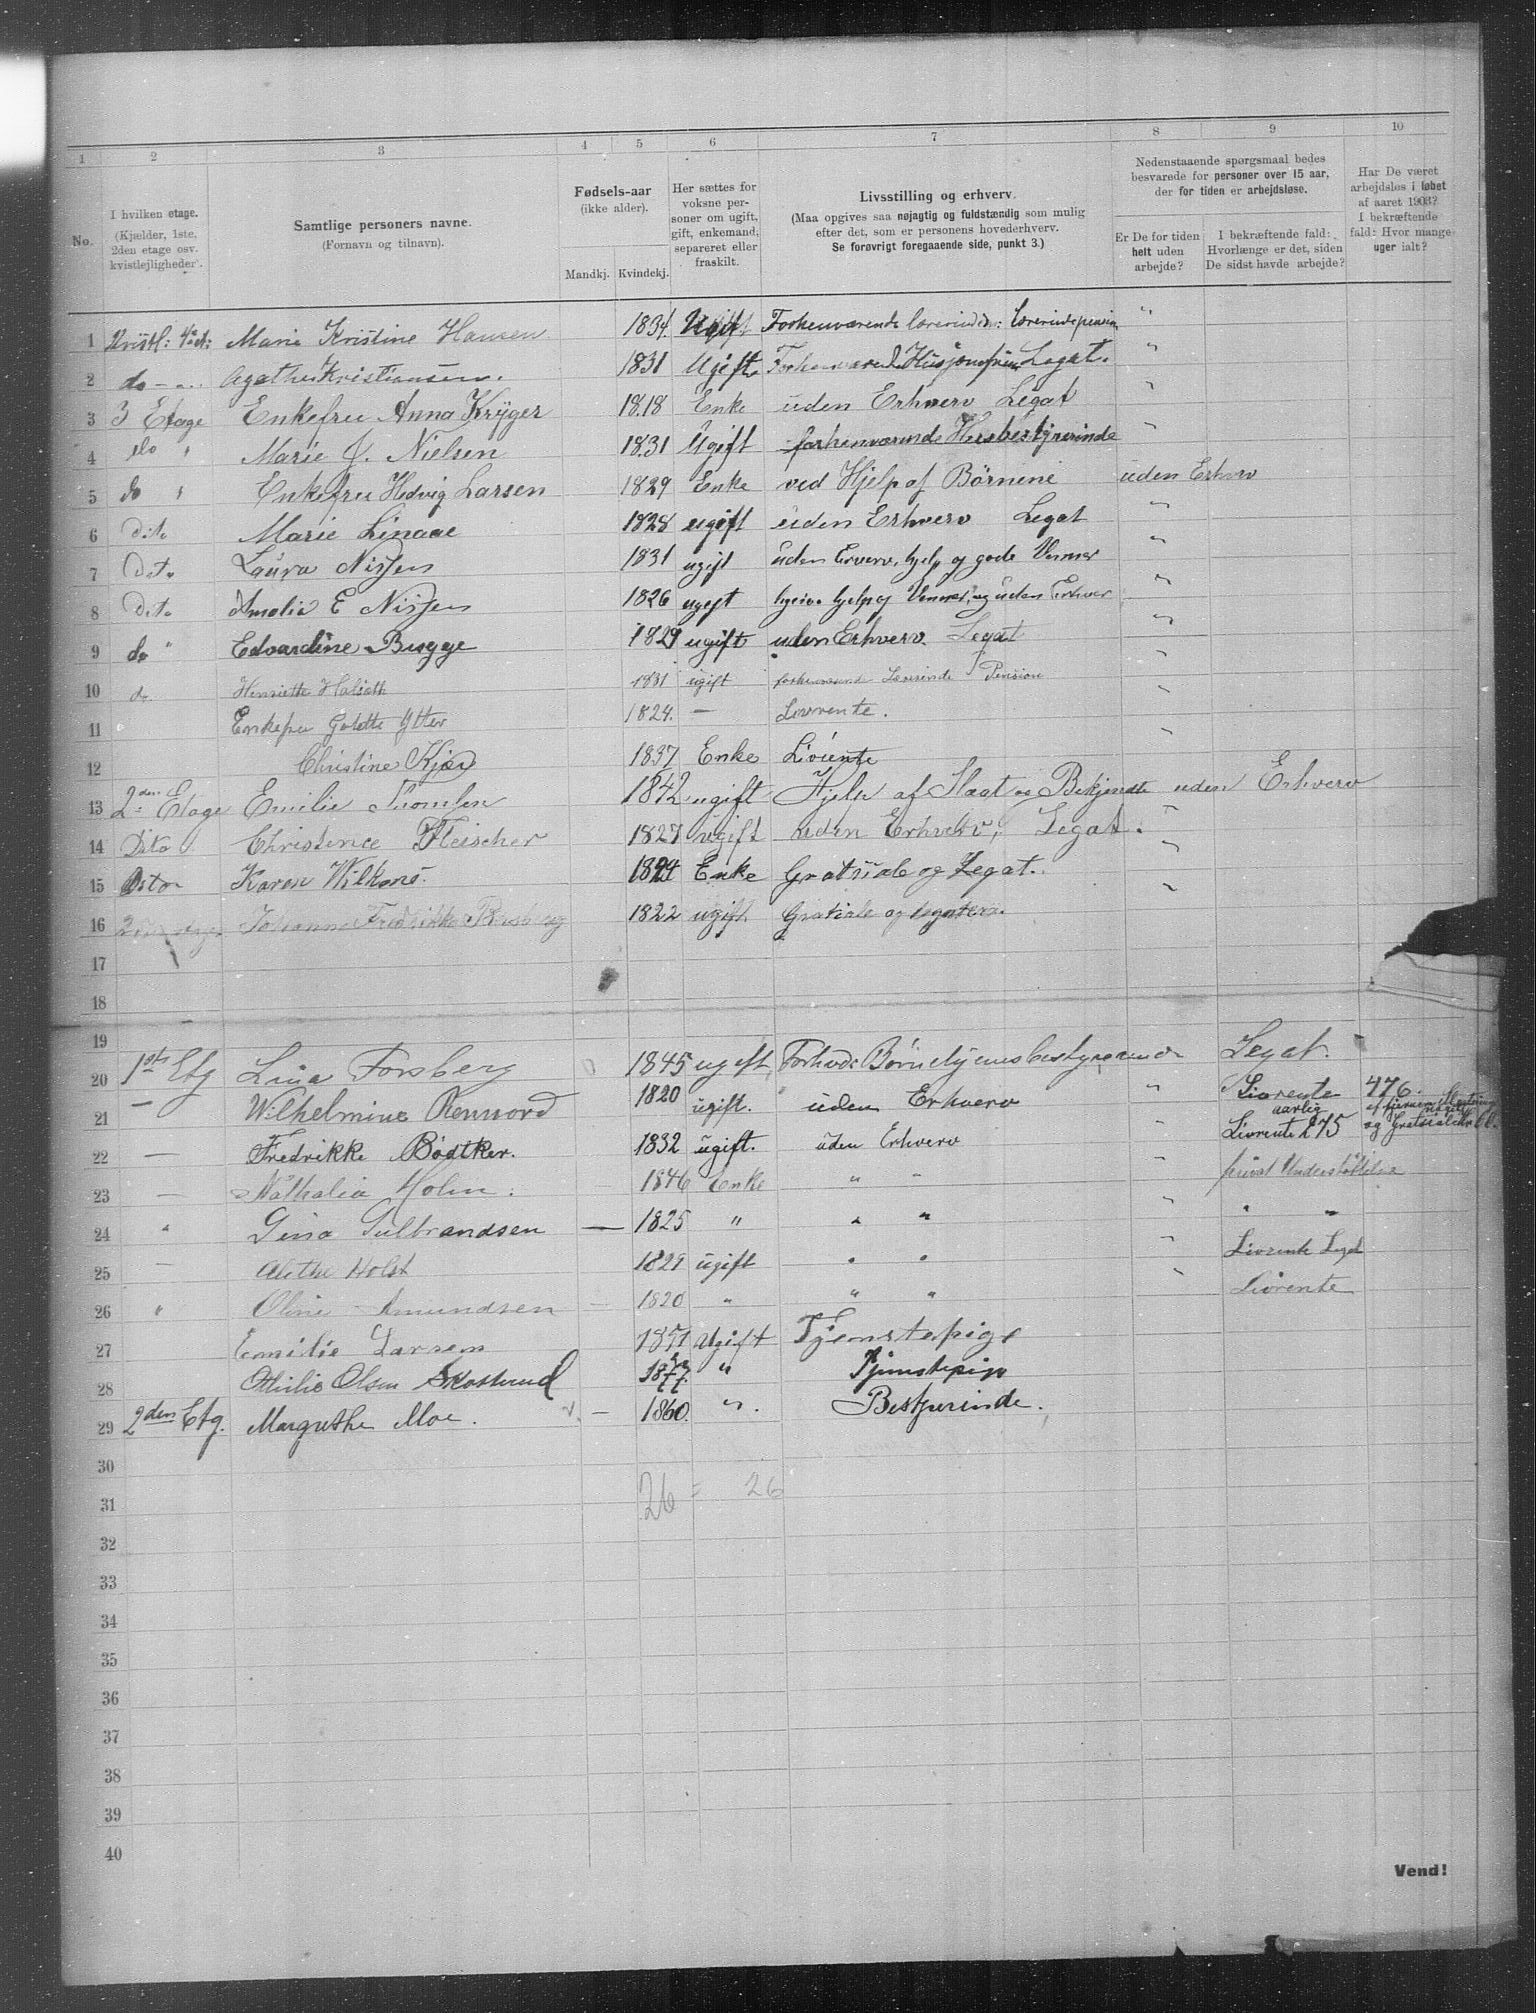 1 2 3 4 5 6 7 8 9 10
No.
I hvilken etage.
(Kjælder, 1ste,
2den etage osv.
kvistlejligheder).
Samtlige personers navne.
(Fornavn og tilnavn).
Fødsels-aar
(ikke alder).
Mandkj. Kvindekj.
Her sættes for
voksne per-
soner om ugift,
gift, enkemand,
separeret eller
fraskilt.
Livsstilling og erhverv.
(Maa opgives saa nøjagtig og fuldstændig som mulig
efter det, som er personens hovederhverv.
Se forøvrigt foregaaende side, punkt 3.)
Nedenstaaende spørgsmaal bedes
besvarede for personer over 15 aar,
der for tiden er arbejdsløse.
Er De for tiden
helt uden
arbejde?
I bekræftende fald:
Hvorlænge er det, siden
De sidst havde arbejde?
Har De været
arbejdsløs i løbet
af aaret 1903?
I bekræftende
fald: Hvor mange
uger ialt?
1 Marie Kristine Hansen 1834. Ugift Forhenværende Lærerinde: Lærerindepension "
2 do Agathe Kristiansen. 1831 Ugift Legat. "
3 3 Etage Enkefru Anna Krÿger 1818 Enke uden Erhverv Legat "
4 do " Marie J. Nielsen 1831 Ugift forhenværende Husbestyrerinde "
5 do " Enkefru Hedvig Larsen 1829 Enke ved Hjelp af Børnene uden Erhverv
6 Dito Marie Linaae 1828 ugift uden Erhverv Legat "
7 Dito Laura Nissen 1831 ugift uden Erverv, hjelp og gode Venner "
8 Dito Amalie E Nissen 1826 ugift hjelp af Venner, og uden Erhver "
9 do " Edvardine Bugge 1829 ugift uden Erhverv Legat "
10 do Henriette 1831 ugift forhenværende Lærerinde Pension "
11 Enkefru Ytter 1824. — Livrente.
12 Christine Kjær 1837 Enke Livrente "
13 2den Etage Emilie Thomsen 1842 ugift Hjelp af Staat og Bekjendte uden Erhverv
14 Dito Christence Fleischer 1827 ugift uden Erhverv, Legat. "
15 Dito Karen Wilkens. 1824 Enke Gratiale og Legat. "
16 Johanne Fredrikke 1822 ugift Gratiale og legater. "
17
18
19
20 1ste Etg Lina Forsberg 1845 ugift, Forhv: Børnehjemsbestyrerinde Legat.
21 — Wilhelmine 1820 ugift. uden Erhverv " Livrente 476
aarlig
22 — Fredrikke Bødtker. 1832 ugift. uden Erhverv " Livrente 275 og Gratiale
23 — Nathalia Holm. 1846 Enke " " " privat Understøttelse
24 " Gina Gulbrandsen — 1825 " " " " " "
25 — Alethe Holst 1829 ugift " " " Livrente Legat
26 " Oline Amundsen — 1820 " " " " Livrente
27 Emilie Larsen Ugift Tjenstepige
28 Othilie Olsen Skostrud 1877. " Tjenstepige
29 2den Etg. Margrethe Moe. — 1860. ". Bestyrerinde.
30
26 = 26
31
32
33
34
35
36
37
38
39
40
Vend!